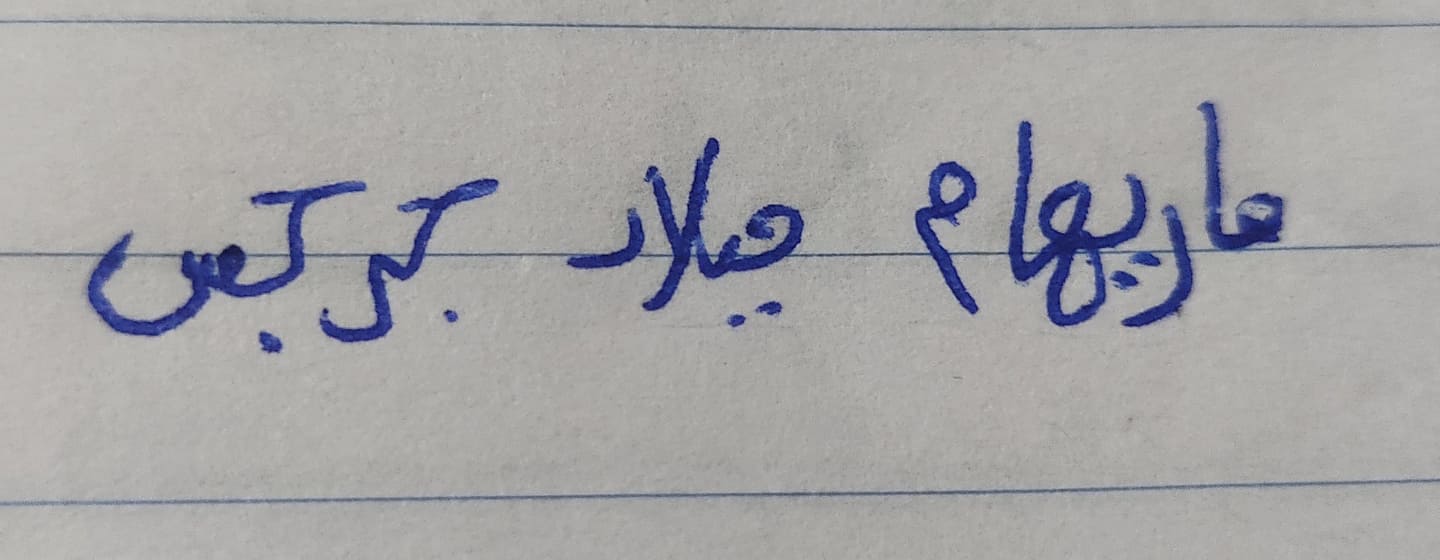 ماريهام ميلاد جرجس